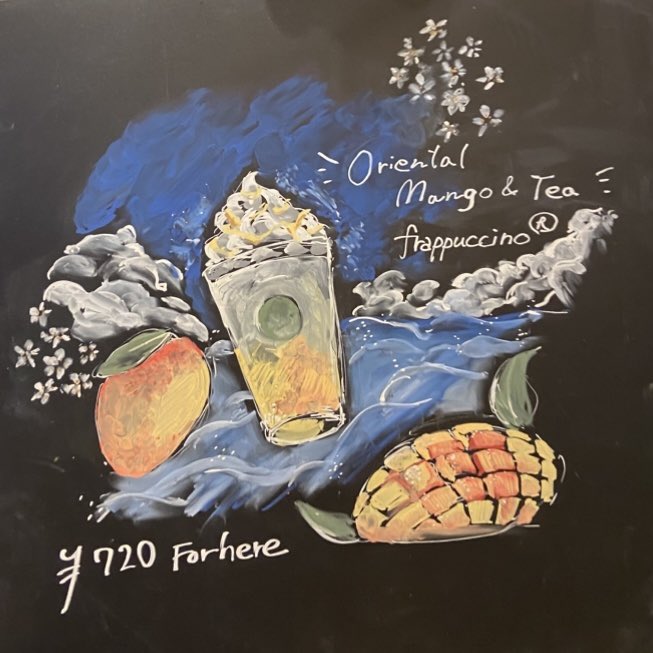 Oriental
Mango & Tea
frappuccino®
¥720 Forhere